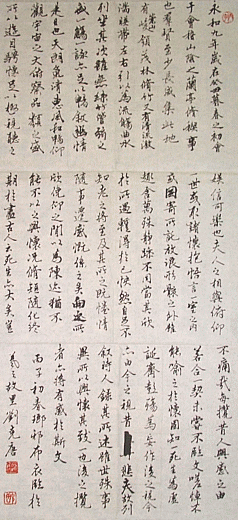 永和九年歲在癸丑暮春之初會
于會稽山陰之蘭亭脩禊事
也羣賢畢至少長咸集此地
有崇山峻領茂林脩竹又有清流激
湍暎帶左右引以為流觴曲水
列坐其次雖無絲竹管弦之
盛一觴一詠亦足以暢敘幽情
是日也天朗氣清惠風和暢仰
觀宇宙之大俯察品類之盛
所以遊目騁懷足以極視聽之
娛信可樂也夫人之相與俯仰
一世或取諸懷抱悟言一室之內
或因寄所託放浪形骸之外雖
趣舍萬殊靜躁不同當其欣
於所遇蹔得於己快然自足不
知老之將至及其所之既惓情
隨事遷感慨係之矣向之所
欣俛仰之間以為陳迹猶不
能不以之興懷況脩短隨化終
期於盡古人云死生亦大矣豈
不痛哉每攬昔人興感之由
若合一契未嘗不臨文嗟悼不
能喻之於懷固知一死生為虛
誕齊彭殤為妄作後之視今
亦由今之視昔悲夫故列
敘時人錄其所述雖世殊事
異所以興懷其致一也後之攬
者亦將有感於斯文
丙子初春鄉邨布衣臨於
羲之故里劉克唐